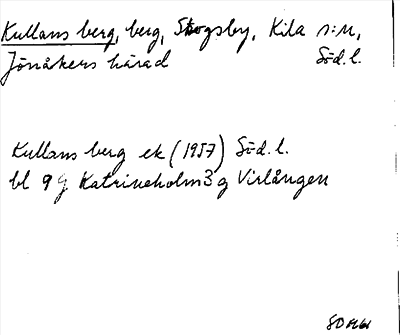 Kullans berg, berg, Skogsby, Kila s:n,
Jönåkers härad Söd. l.
Kullans berg ek (1957) Söd. l.
bl 9 g Katrineholm 3 g Virlången